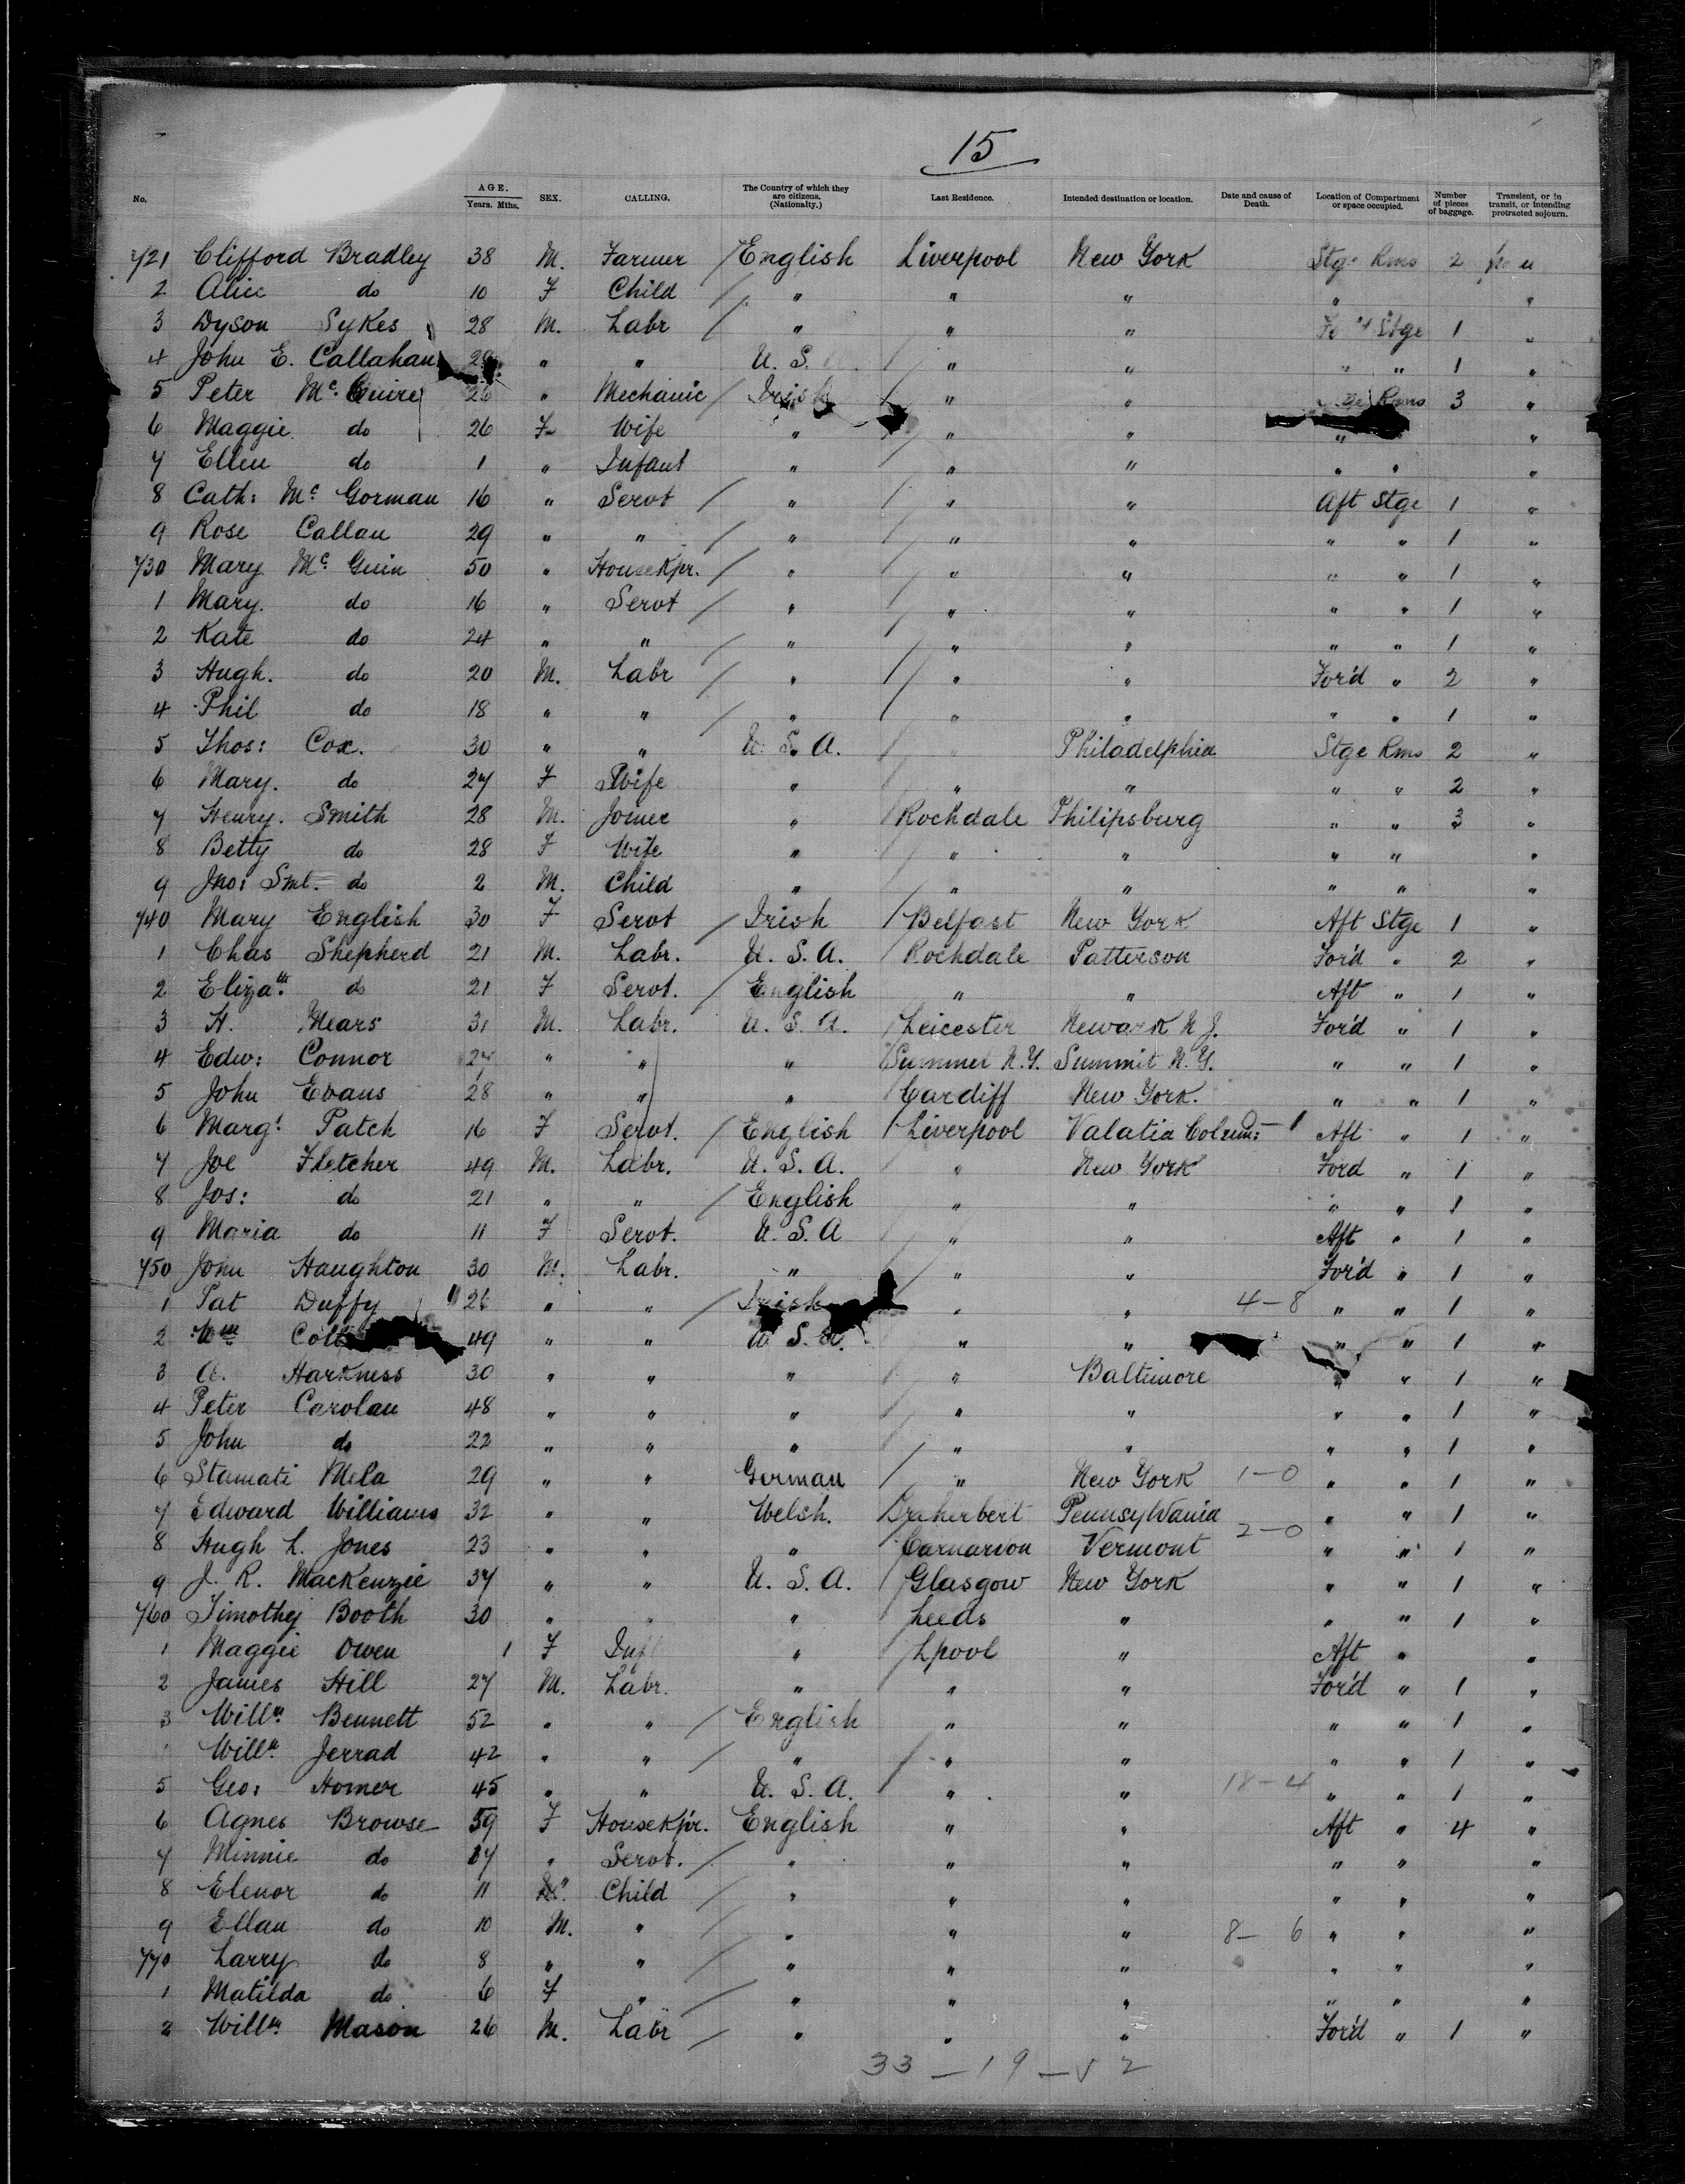 15
No. AGE. Years. Mths. SEX. CALLING. The Country of which they are citizens. (Nationalty.) Last Residence. Intended destination or location. Date and cause of Death. Location of Compartment or space occupied. Number of pieces of baggage. Transient, or in transit, or intending protracted sojourn.
721 Clifford Bradley 38 M. Farmer / English Liverpool New York Stge Rms 2
2 Alice do 10 F Child / " " " " "
3 Dyson Sykes 28 M. Labr / " " " Stge 1 "
4 John E. Callahan " " U. S. / " " " " 1 "
5 Peter Mc Guire 26 " Mechanic / Irish / " " Rms 3 "
6 Maggie do 26 F Wife " / " " " "
7 Ellen do 1 " Infant " / " " " " "
8 Cath: Mc Gorman 16 " Servt / " / " " Aft Stge 1 "
9 Rose Callan 29 " " / " / " " " " 1 "
730 Mary Mc Guin 50 " Housekpr. / " / " " " " 1 "
1 Mary. do 16 " Servt / " / " " " " 1 "
2 Kate do 24 " " / " / " " " " 1 "
3 Hugh. do 20 M. Labr / " / " " For'd " 2 "
4 Phil do 18 " " / " / " " " " 1 "
5 Thos: Cox. 30 " " U. S. A. / " Philadelphia Stge Rms 2 "
6 Mary. do 27 F Wife " / " " " " 2 "
7 Henry. Smith 28 M. Joiner " / Rochdale Philipsburg " " 3 "
8 Betty do 28 F Wife " / " " " " "
9 Jno: Sml. do 2 M. Child " / " " " " "
740 Mary English 30 F Servt / Irish / Belfast New York Aft Stge 1 "
1 Chas Shepherd 21 M. Labr. U. S. A. / Rochdale Patterson For'd " 2 "
2 Elizath. do 21 F Servt. / English " " Aft " 1 "
3 H. Mears 31 M. Labr. U. S. A. / Leicester Newark N J. For'd " 1 "
4 Edw: Connor 27 " " " / Summer N.Y. Summit N.Y. " " 1 "
5 John Evans 28 " " " / Cardiff New York. " " 1 "
6 Margt Patch 16 F Servt. / English / Liverpool Valatia Colum: Aft " 1 "
7 Joe Fletcher 49 M. Labr. U. S. A. / " New York Ford " 1 "
8 Jos: do 21 " " / English " " " " 1 "
9 Maria do 11 F Servt. U. S. A / " " Aft " 1 "
750 John Haughton 30 M. Labr. " / " " For'd " 1 "
1 Pat Duffy 26 " " / Irish " " 4-8 " " 1 "
2 Wm 49 " " U. S. A. " " " " 1 "
3 A. Harkness 30 " " " / " Baltimore " " 1 "
4 Peter Carolan 48 " " " / " " " " 1 "
5 John do 22 " " " / " " " " 1 "
6 Stamati Mela 29 " " German / " New York 1-0 " " 1 "
7 Edward Williams 32 " " Welsh. Pennsylvania " " 1 "
2-0
8 Hugh L. Jones 23 " " " / Carnarvon Vermont " " 1 "
9 J. R. Mackenzie 37 " " U. S. A. / Glasgow New York " " 1 "
760 Timothy Booth 30 " " " / Leeds " " " 1 "
1 Maggie Owen 1 F Inf " / Lpool " Aft " "
2 James Hill 27 M. Labr. " / " " For'd " 1 "
3 Willm. Bennett 52 " " / English / " " " " 1 "
Willm. Jerrad 42 " " / " / " " " " 1 "
5 Geo: Homer 45 " " U. S. A. / " " 18-4 " " 1 "
6 Agnes Browse 59 F Housekpr. English " " Aft " 4 "
7 Minnie do 17 " Servt. / " " " " " "
8 Elenor do 11 " Child / " " " " " "
9 Ellan do 10 M. " / " " " 8- 6 " " "
770 Larry do 8 " " / " " " " " "
1 Matilda do 6 F " / " " " " " "
2 Willm. Mason 26 M. Labr / " " " For'd " 1 "
33 - 19 - 52